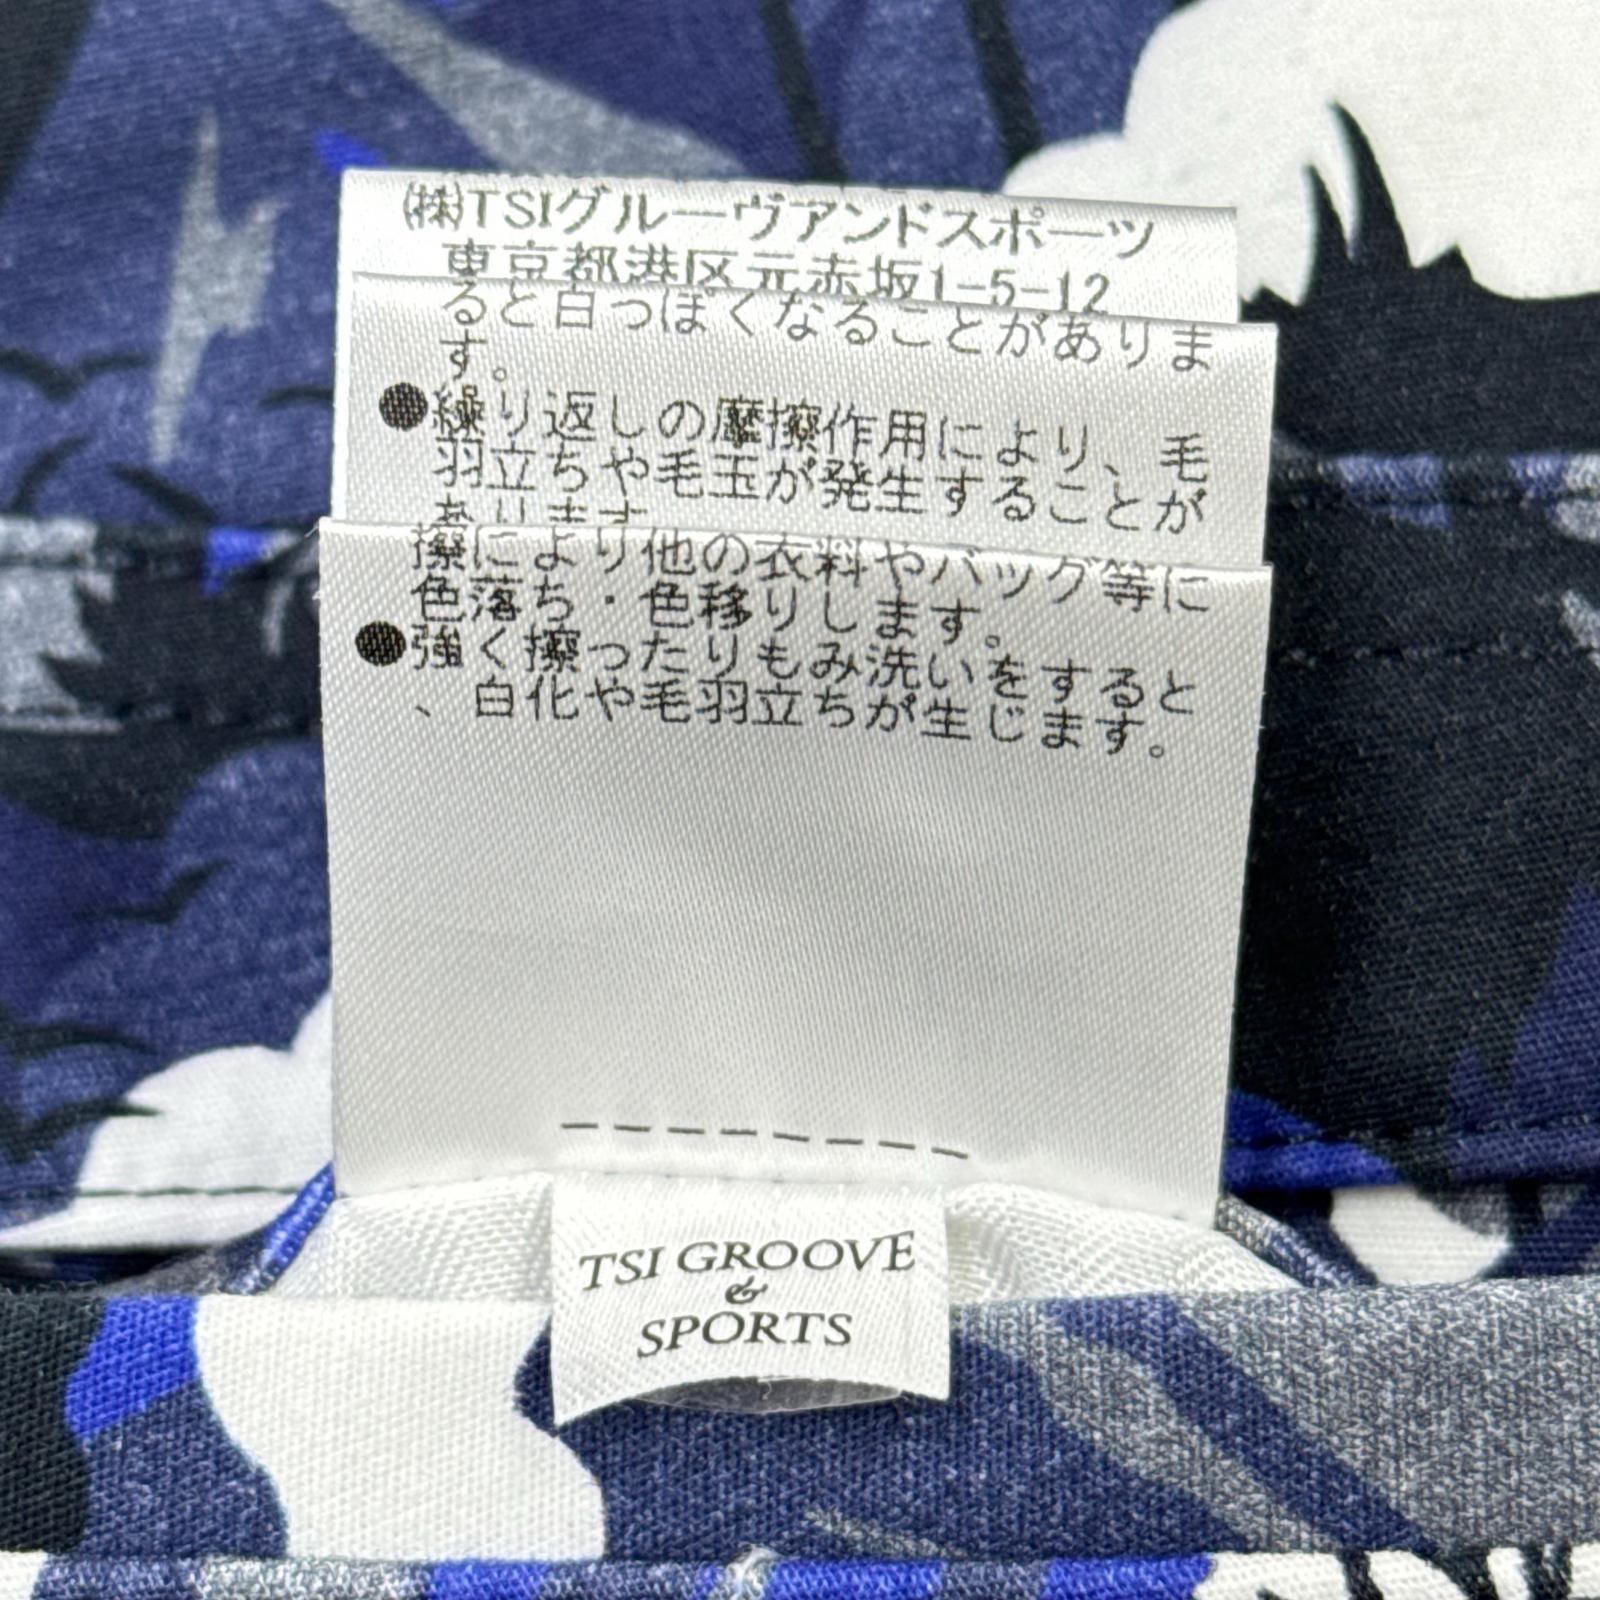 ㈱TSIグルーヴアンドスポーツ
東京都港区元赤坂1-5-12
ると白っぽくなることがありま
す。
●繰り返しの摩擦作用により、毛
羽立ちや毛玉が発生することが
あります
擦により他の衣料やバッグ等に
色落ち・色移りします。
●強く擦ったりもみ洗いをすると
、白化や毛羽立ちが生じます。
TSI GROOVE
&
SPORTS